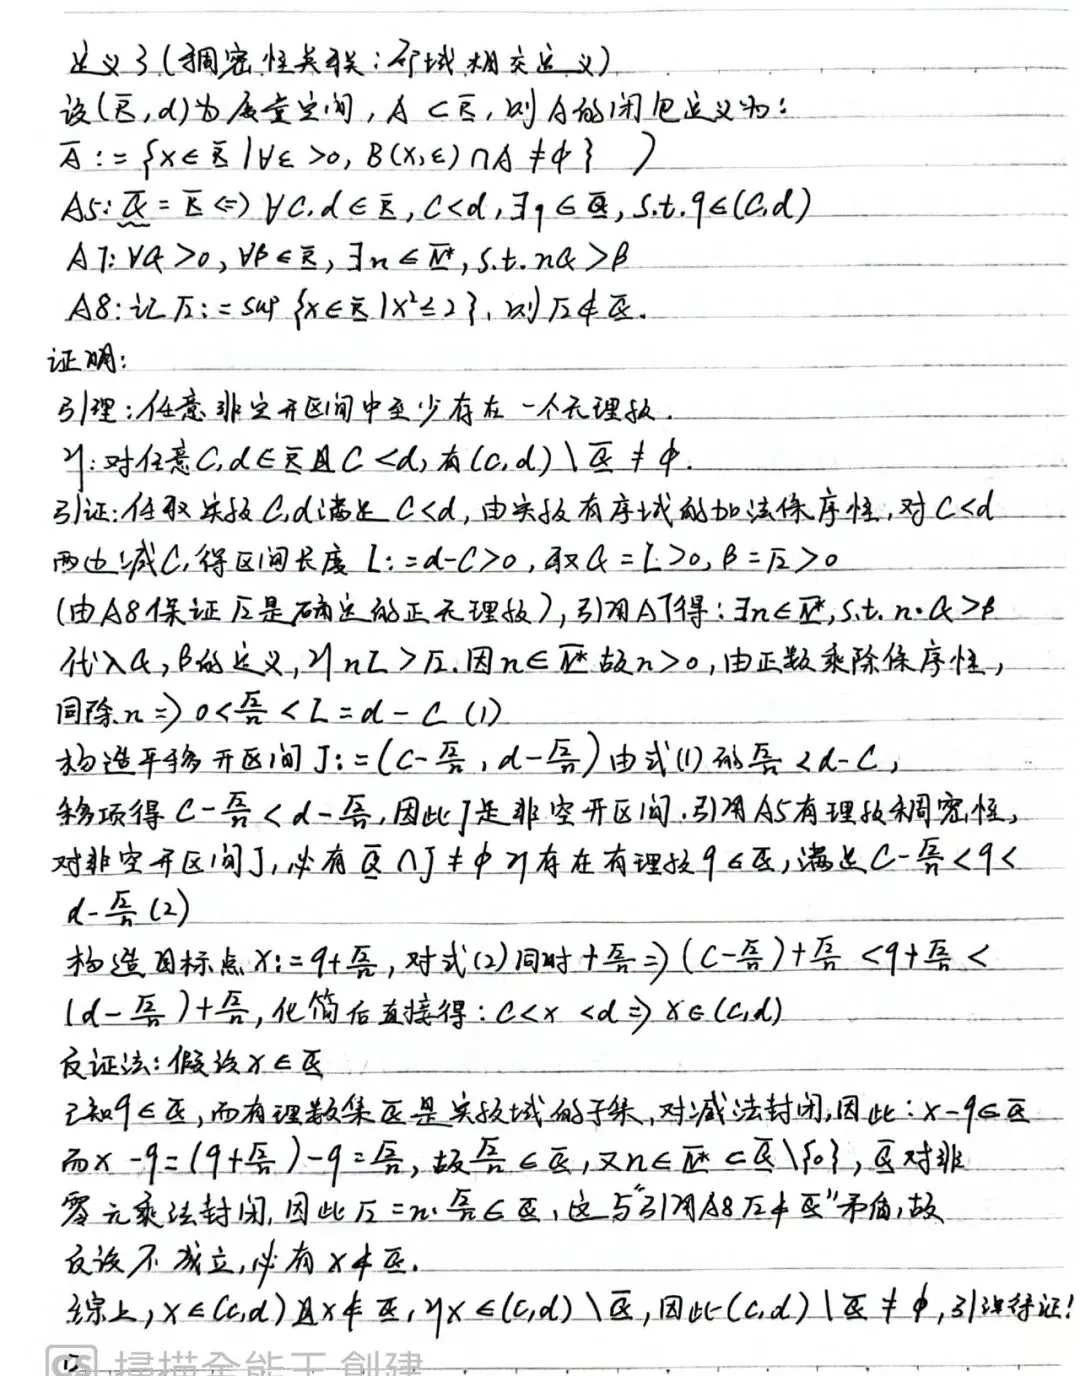 定义3(稠密性关联:邻域相交定义)
设(ℝ,d)为度量空间,A⊂ℝ,则A的闭包定义为:
A̅:={x∈ℝ|∀ε>0,B(x,ε)∩A≠φ} )
A5:ℚ̅=ℝ⇔∀c,d∈ℝ,c<d,∃q∈ℚ,s.t.q∈(c,d)
A7:∀α>0,∀β∈ℝ,∃n∈ℕ*,s.t.nα>β
A8:记√2:=sup{x∈ℝ|x²≤2},则√2∉ℚ.
证明:
引理:任意非空开区间中至少存在一个无理数.
即:对任意c,d∈ℝ且c<d,有(c,d)\ℚ≠φ.
引证:任取实数c,d满足c<d,由实数有序域的加法保序性,对c<d
两边减c,得区间长度L:=d-c>0,取α=L>0,β=√2>0
(由A8保证√2是确定的正无理数),引用A7得:∃n∈ℕ*,s.t.n·α>β
代入α,β的定义,即nL>√2.因n∈ℕ*故n>0,由正数乘除保序性,
同除n⇒0<√2/n<L=d-c (1)
构造平移开区间J:=(c-√2/n,d-√2/n)由式(1)的√2/n<d-c,
移项得c-√2/n<d-√2/n,因此J是非空开区间.引用A5有理数稠密性,
对非空开区间J,必有ℚ∩J≠φ即存在有理数q∈ℚ,满足c-√2/n<q<
d-√2/n (2)
构造目标点x:=q+√2/n,对式(2)同时+√2/n⇒(c-√2/n)+√2/n<q+√2/n<
(d-√2/n)+√2/n,化简后直接得:c<x<d⇒x∈(c,d)
反证法:假设x∈ℚ
已知q∈ℚ,而有理数集ℚ是实数域的子集,对减法封闭,因此:x-q∈ℚ
而x-q=(q+√2/n)-q=√2/n,故√2/n∈ℚ,又n∈ℕ*⊂ℚ\{0},ℚ对非
零元乘法封闭,因此√2=n·√2/n∈ℚ,这与"引用A8√2∉ℚ"矛盾,故
反设不成立,必有x∉ℚ.
综上,x∈(c,d)且x∉ℚ,即x∈(c,d)\ℚ,因此(c,d)\ℚ≠φ,引理得证!
CS 掃描全能王 創建